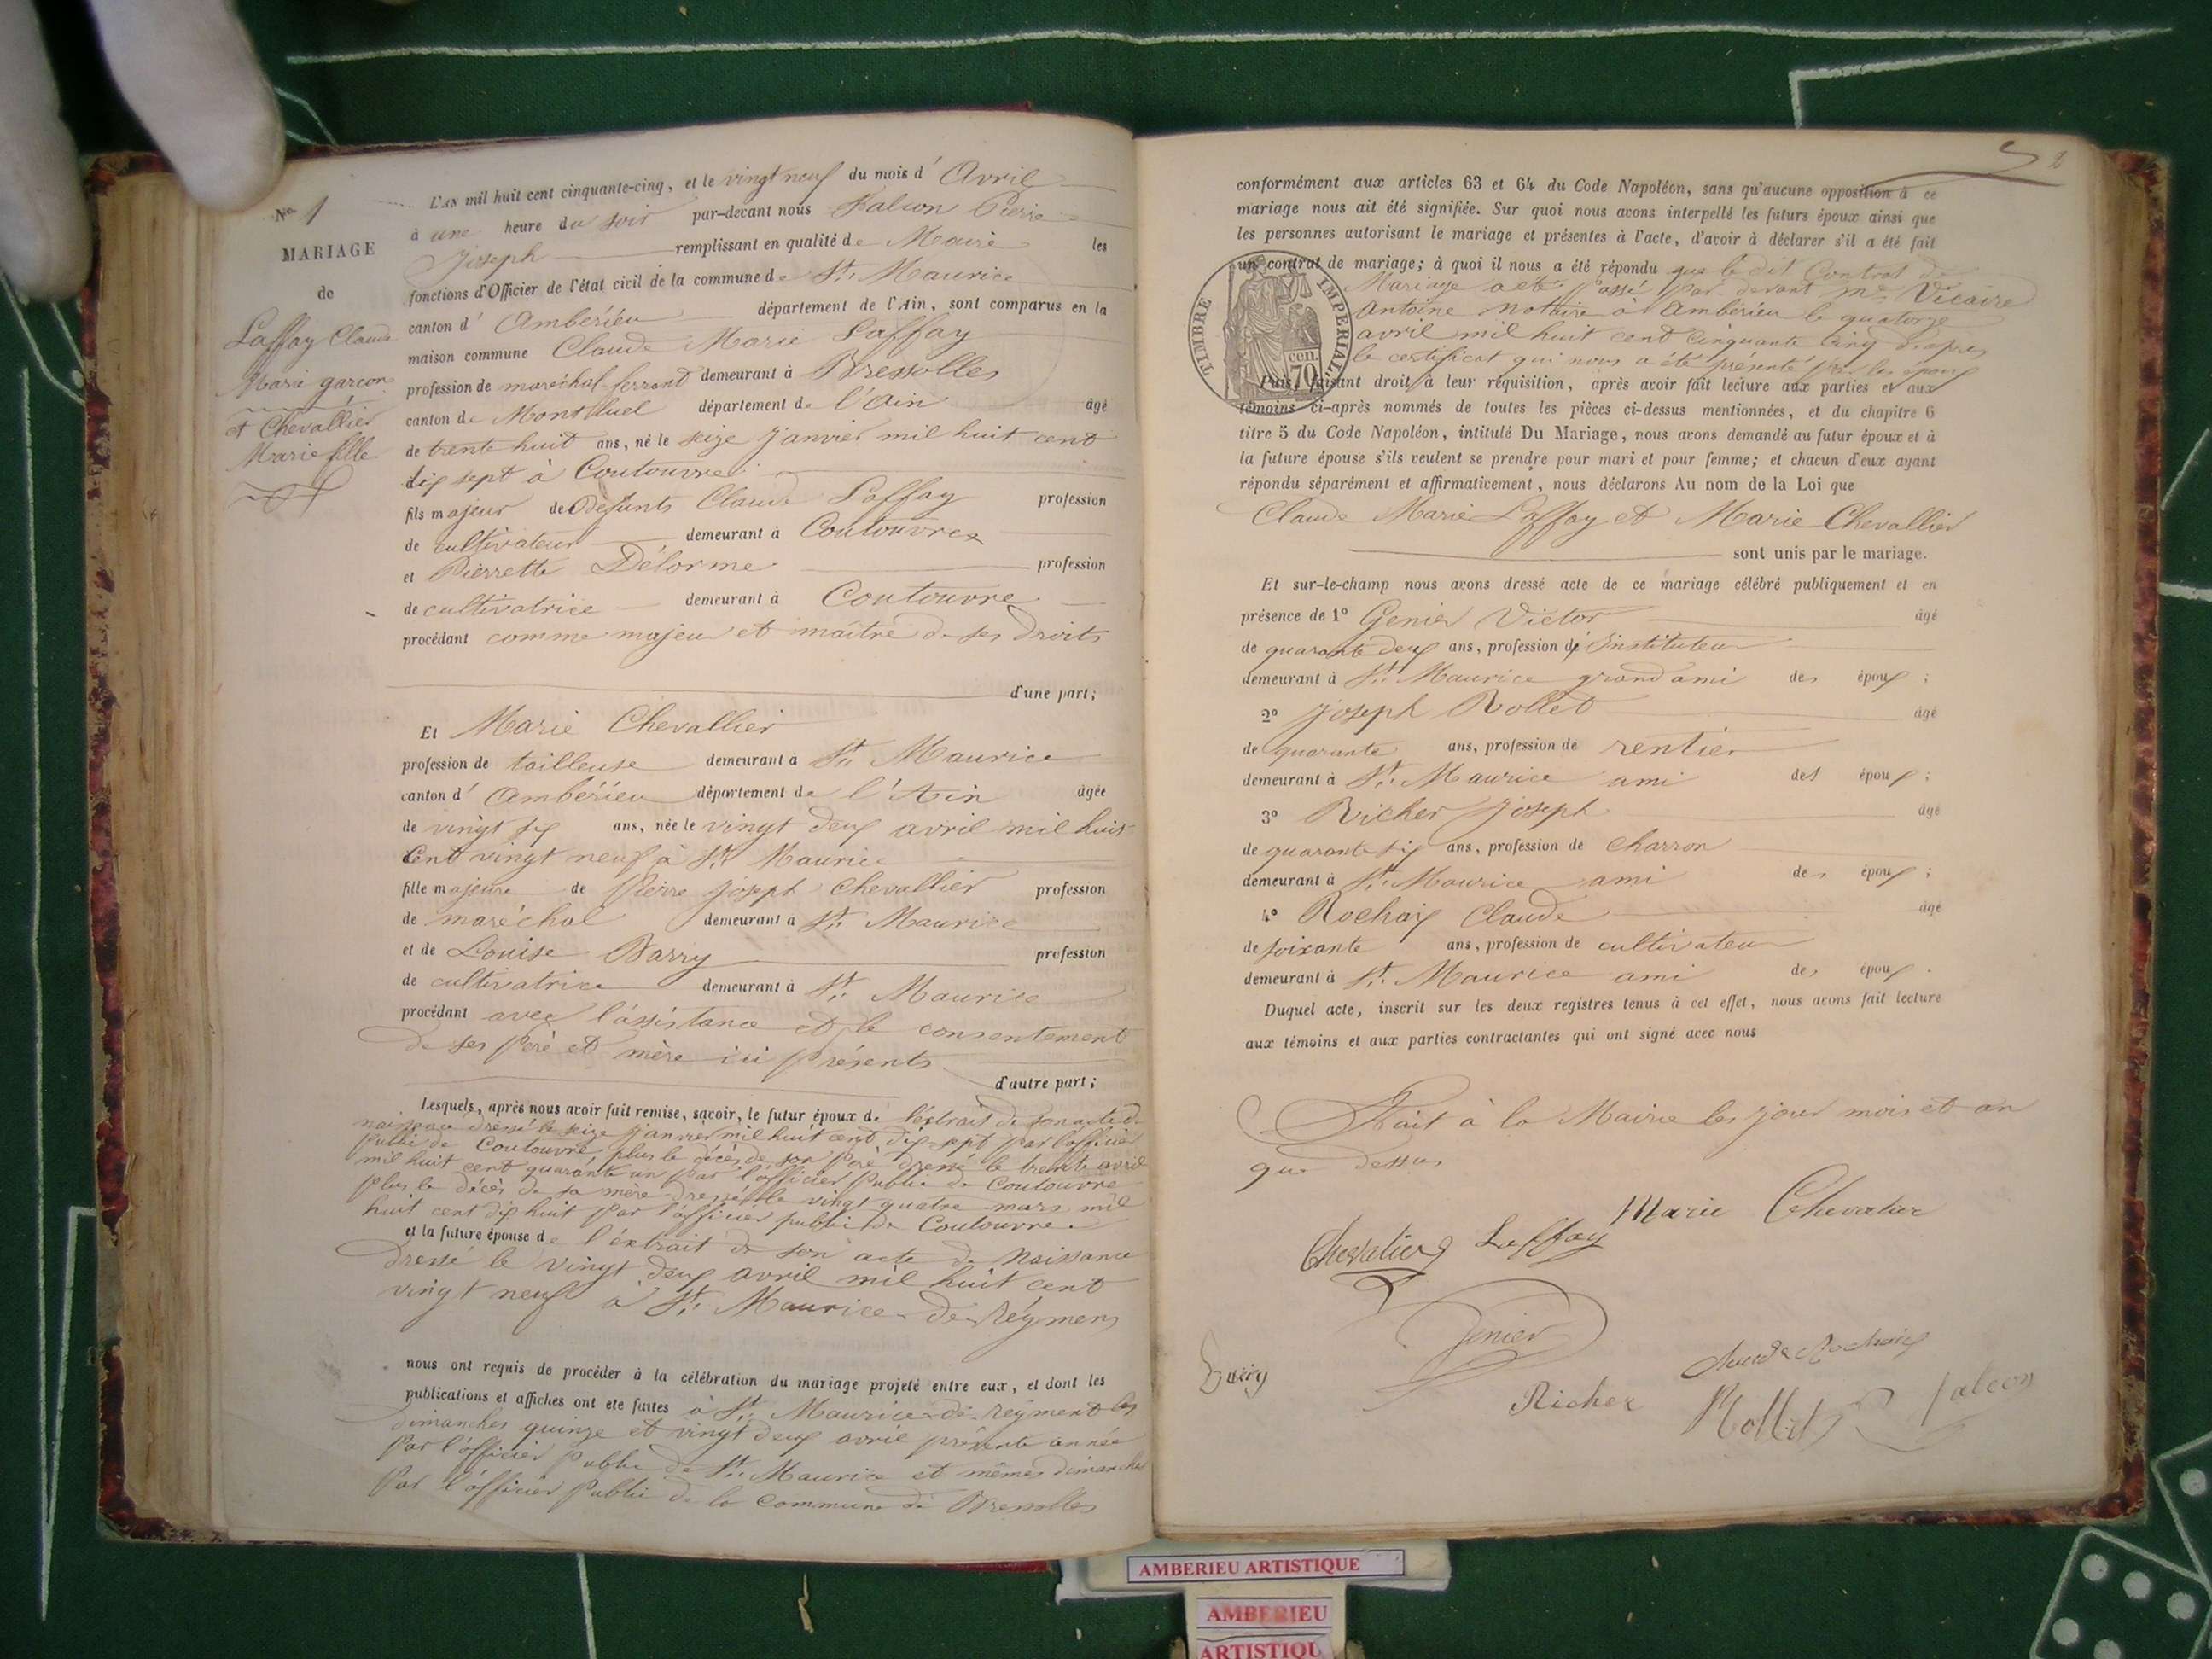 No 1
MARIAGE
de
Laffay Claude
Marie garçon
et Chevallier
Marie fille
L'AN mil huit cent cinquante-cinq, et le vingt neuf du mois d' Avril
à une heure du soir par-devant nous Falcon Pierre
Joseph remplissant en qualité de Maire les
fonctions d'Officier de l'état civil de la commune de St. Maurice
canton d' Ambérieu département de l'Ain, sont comparus en la
maison commune Claude Marie Laffay
profession de maréchal ferrant demeurant à Bressolles
canton de Montluel département de l'Ain âgé
de trente huit ans, né le seize janvier mil huit cent
dix sept à Coutouvre
fils majeur de Defunts Claude Laffay profession
de cultivateur demeurant à Coutouvre
et Pierrette Délorme profession
de cultivatrice demeurant à Coutouvre
procédant comme majeur et maître de ses droits
d'une part;
Et Marie Chevallier
profession de tailleuse demeurant à St. Maurice
canton d' Ambérieu département de l'Ain âgée
de vingt six ans, née le vingt deux avril mil huit
Cent vingt neuf à St. Maurice
fille majeure de Pierre Joseph Chevallier profession
de maréchal demeurant à St. Maurice
et de Louise Barry profession
de cultivatrice demeurant à St. Maurice
procédant avec l'assistance et le consentement
de ses père et mère ici présents
d'autre part;
Lesquels, après nous avoir fait remise, savoir, le futur époux de l'extrait de son acte de
naissance dressé le seize janvier mil huit cent dix-sept par l'officier
public de Coutouvre plus le décès de son père dressé le trente avril
mil huit cent quarante un par l'officier public de Coutouvre
plus le décès de sa mère dressé le vingt quatre mars mil
huit cent dix huit par l'officier public de Coutouvre.
et la future épouse de l'extrait de son acte de Naissance
dressé le vingt deux avril mil huit cent
vingt neuf à St. Maurice-De-Réymens
nous ont requis de procéder à la célébration du mariage projeté entre eux, et dont les
publications et affiches ont été faites à St. Maurice-de-Reyment les
dimanches quinze et vingt deux avril présente année
Par l'officier Public de St. Maurice et mêmes dimanches
Par l'officier Public de la Commune de Bressolles
2
conformément aux articles 63 et 64 du Code Napoléon, sans qu'aucune opposition à ce
mariage nous ait été signifiée. Sur quoi nous avons interpellé les futurs époux ainsi que
les personnes autorisant le mariage et présentes à l'acte, d'avoir à déclarer s'il a été fait
un contrat de mariage; à quoi il nous a été répondu que le dit Contrat de
Mariage a été passé par-devant me. Vicaire
Antoine Notaire à Ambérieu le quatorze
avril mil huit cent cinquante cinq d'après
le certificat qui nous a été présenté par les époux
TIMBRE IMPERIAL
70 cen.
Puis, faisant droit à leur réquisition, après avoir fait lecture aux parties et aux
témoins ci-après nommés de toutes les pièces ci-dessus mentionnées, et du chapitre 6
titre 5 du Code Napoléon, intitulé Du Mariage, nous avons demandé au futur époux et à
la future épouse s'ils veulent se prendre pour mari et pour femme; et chacun d'eux ayant
répondu séparément et affirmativement, nous déclarons Au nom de la Loi que
Claude Marie Laffay et Marie Chevallier
sont unis par le mariage.
Et sur-le-champ nous avons dressé acte de ce mariage célébré publiquement et en
présence de 1º Genier Victor âgé
de quarante deux ans, profession d'Instituteur
demeurant à St. Maurice grand ami des époux;
2º Joseph Rollet âgé
de quarante ans, profession de rentier
demeurant à St. Maurice ami des époux;
3º Richer Joseph âgé
de quarante six ans, profession de charron
demeurant à St. Maurice ami des époux;
4º Rochaix Claude âgé
de soixante ans, profession de cultivateur
demeurant à St. Maurice ami des époux.
Duquel acte, inscrit sur les deux registres tenus à cet effet, nous avons fait lecture
aux témoins et aux parties contractantes qui ont signé avec nous
Fait à la Mairie les jour mois et an
que dessus
Marie Chevalier
Chevalier Laffay
Genier
Claude Rochaix
Richer Rollet falcon
AMBERIEU ARTISTIQUE
AMBERIEU
ARTISTIQU